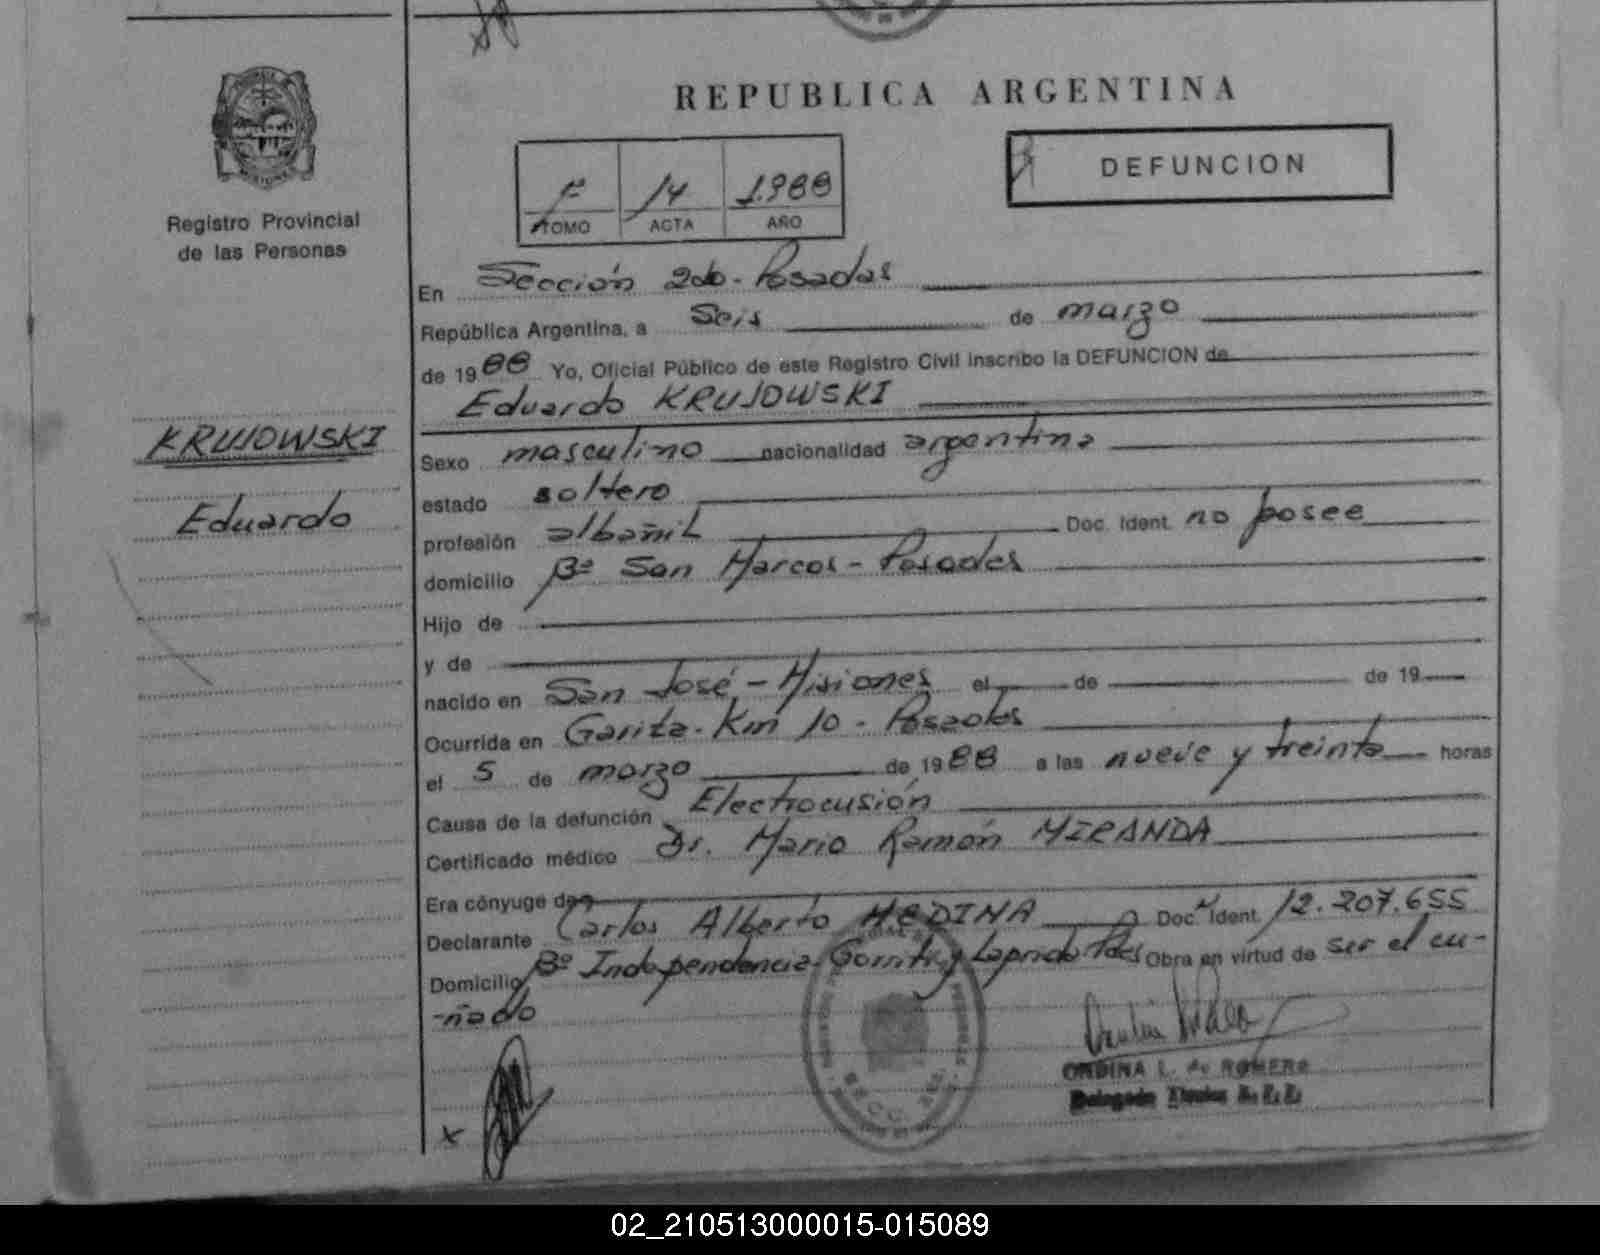 REPUBLICA ARGENTINA
DEFUNCION
1º 14 1.988
TOMO ACTA AÑO
MISIONES
Registro Provincial
de las Personas
KRUJOWSKI
Eduardo
En Sección 2da - Posadas
República Argentina, a Seis de marzo
de 1988 Yo, Oficial Público de este Registro Civil inscribo la DEFUNCION de
Eduardo KRUJOWSKI
Sexo masculino nacionalidad argentina
estado soltero
profesión albañil Doc. Ident. no posee
domicilio Bº San Marcos - Posadas
Hijo de
y de
nacido en San José - Misiones el de de 19
Ocurrida en Garita - Km 10 - Posadas
el 5 de marzo de 1988 a las nueve y treinta horas
Causa de la defunción Electrocusión
Certificado médico Dr. Mario Ramón MIRANDA
Era cónyuge de
Declarante Carlos Alberto MEDINA Doc. Ident. 12.207.655
Domicilio Bº Independencia Gorriti y Laprida Pdas Obra en virtud de ser el cu-
-ñado
x
ONDINA L. de ROMERO
02_210513000015-015089